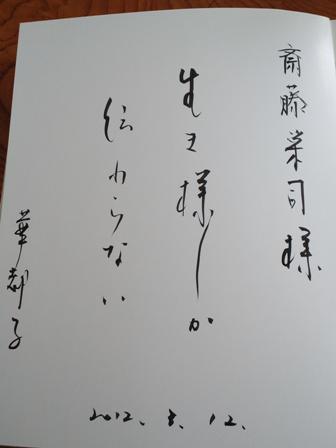 斎藤栄司様
生き様しか
伝わらない
華都子
2012. 8. 12.